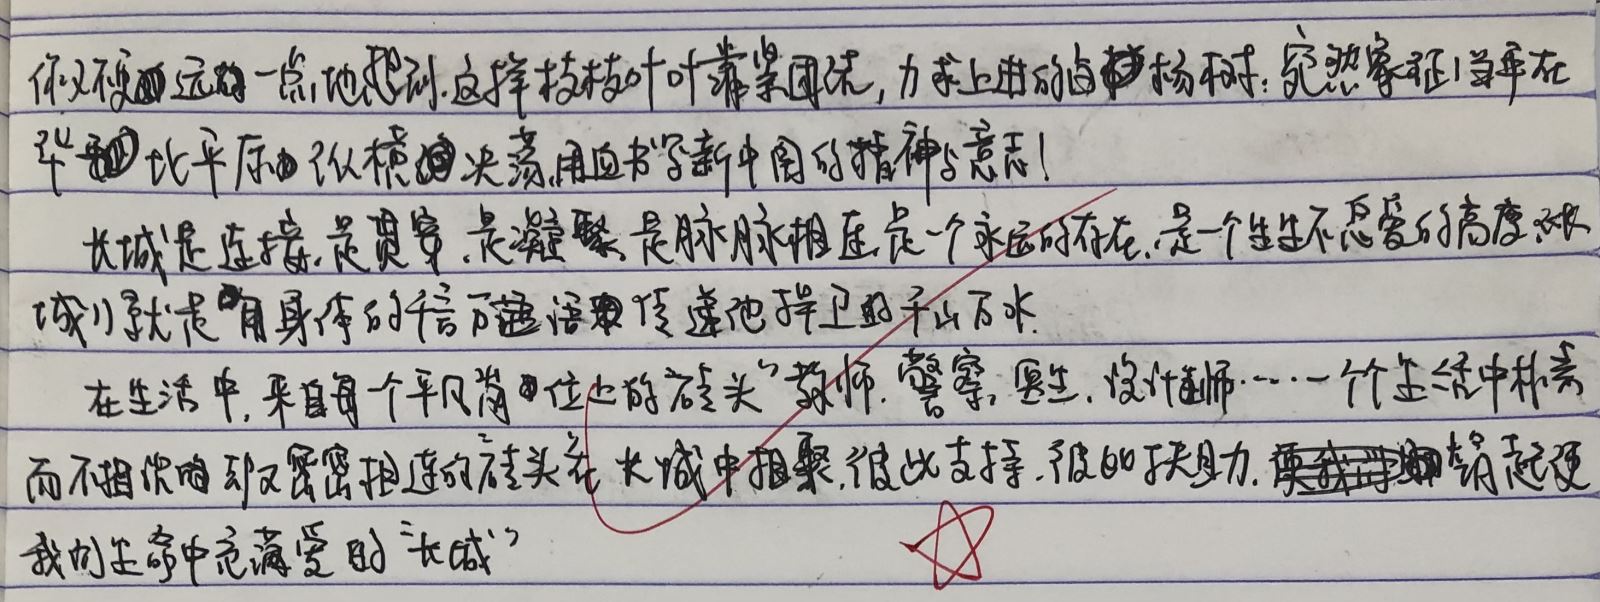 你又更远一点地想到这样枝枝叶叶靠紧团结，力求上进的白杨树，宛然象征了当年在
华北平原纵横决荡用血书写新中国的精神与意志！
长城是连接，是贯穿，是凝聚是脉脉相连是一个永远的存在，是一个生生不息爱的高度，长
城）就是用身体的千言万语传递他捍卫的千山万水.
在生活中，来自每个平凡岗位上的砖头”教师.警察，医生.设计师……一个个生活中朴素
而不相欣的却又密密相连的“砖头在长城中相聚，彼此支持.彼此扶助.铸起使
我们生命中充满爱的“长城”